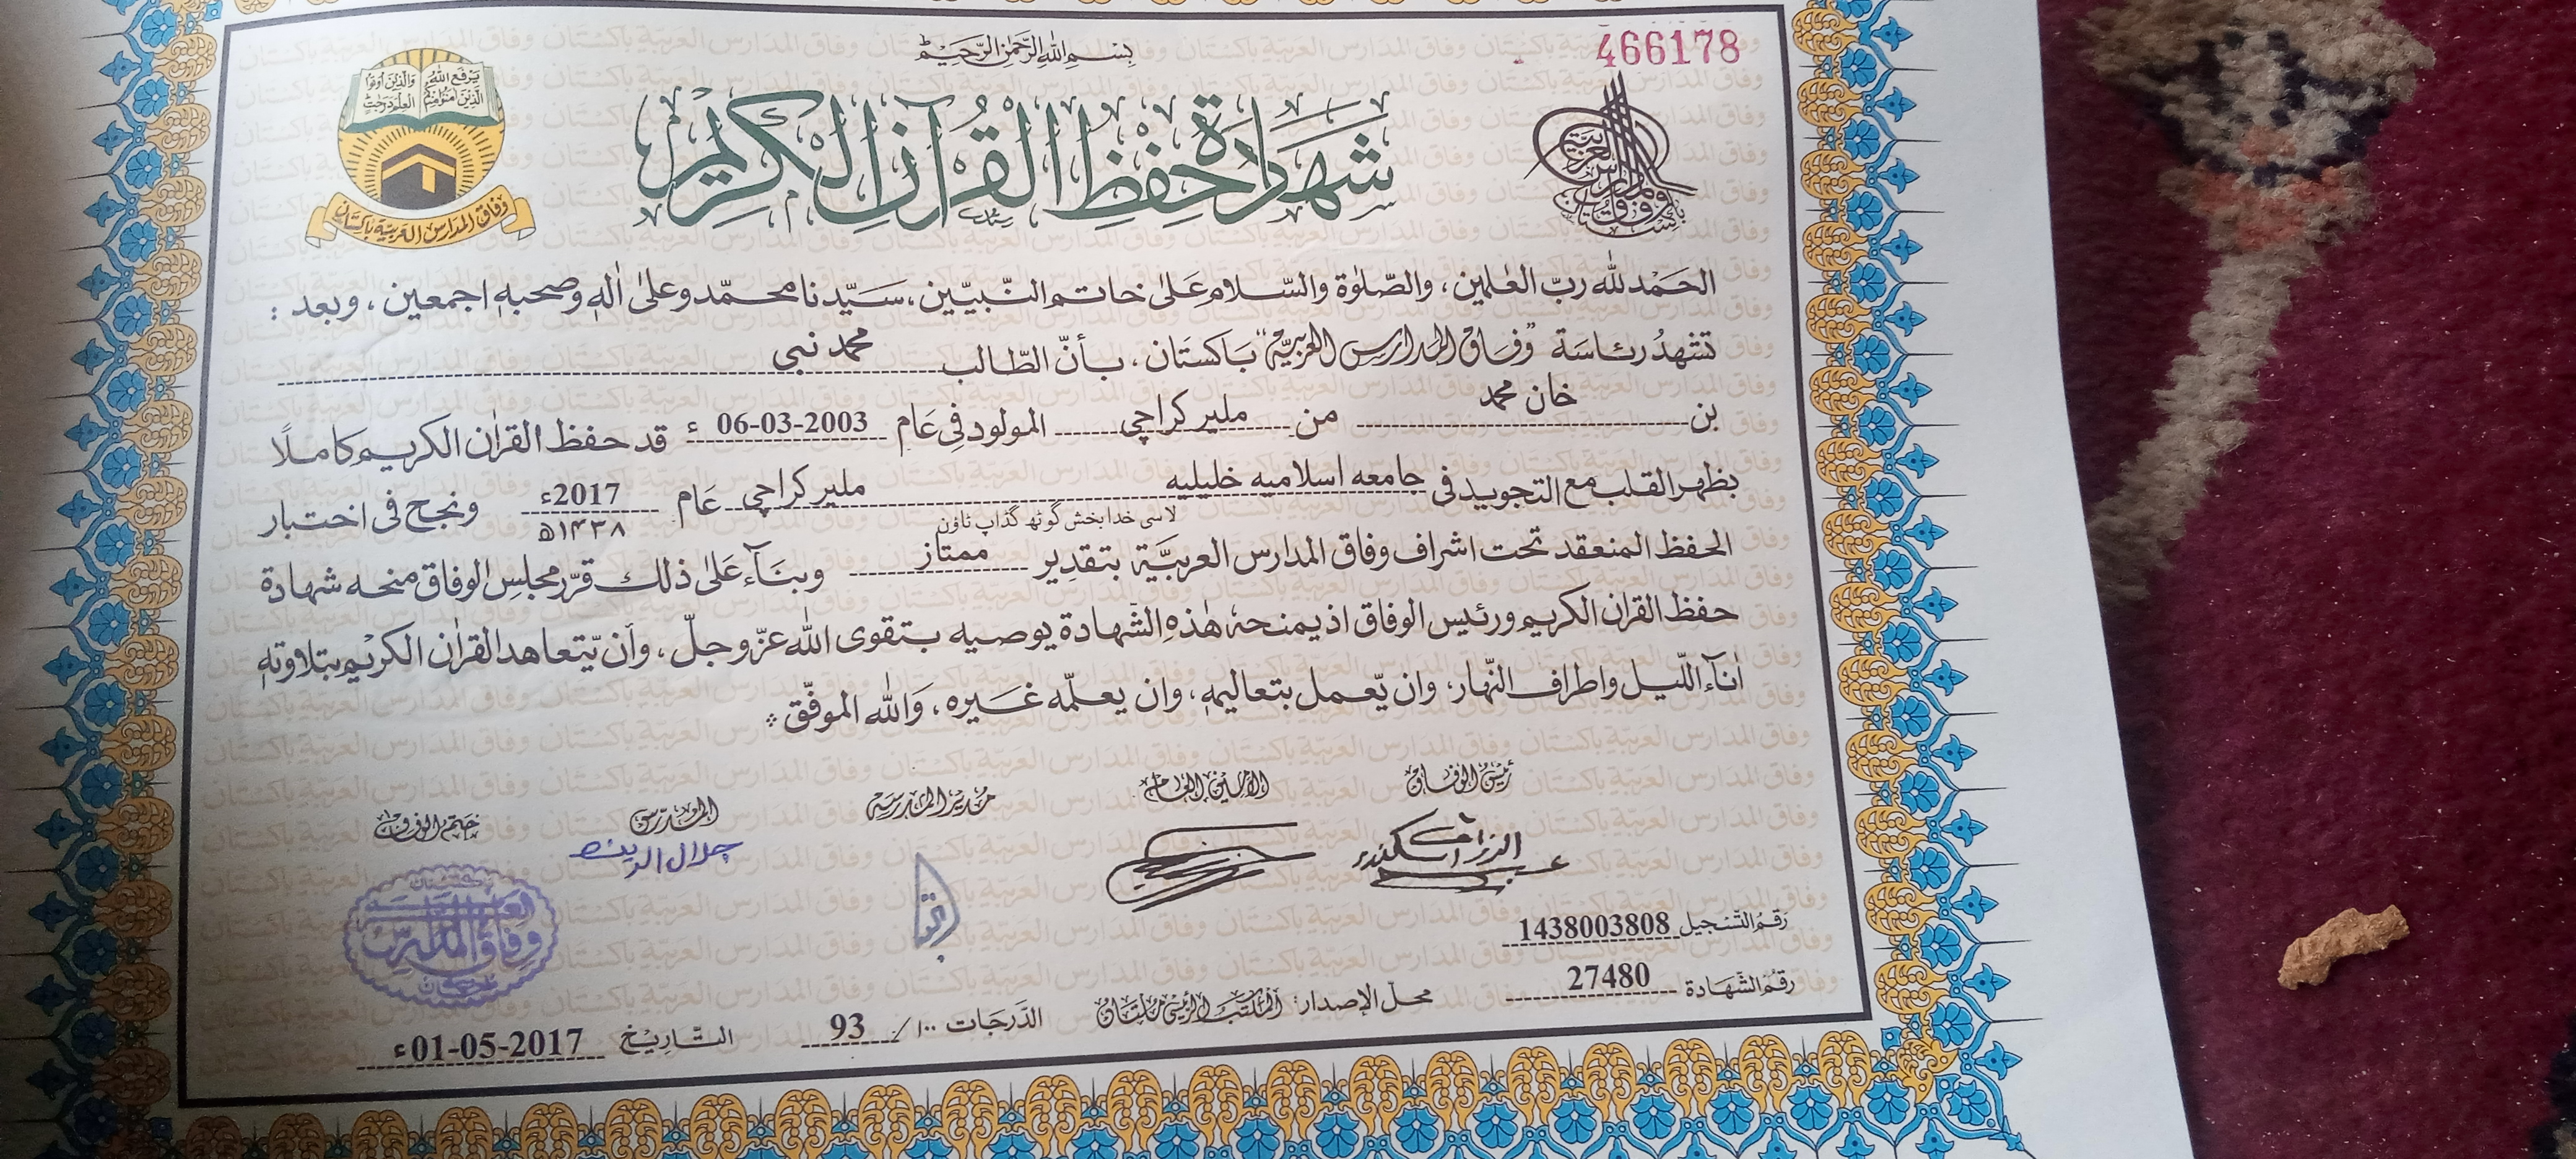 466178
بسم الله الرحمن الرحيم
يرفع الله الذين آمنوا منكم والذين اوتوا العلم درجت
وفاق المدارس العربية باكستان
وفاق المدارس العربية باكستان
شهادة حفظ القرآن الكريم
الحمد لله رب العلمين، والصلوة والسلام على خاتم النبيين، سيدنا محمد وعلى اله وصحبه اجمعين، وبعد:
تشهد رئاسة "وفاق المدارس العربية" باكستان، بأن الطالب محمد نبی
بن خان محمد من ملیر کراچی المولود في عام 06-03-2003 ء قد حفظ القران الكريم كاملا
بظهر القلب مع التجويد في جامعه اسلاميه خليليه ملیر کراچی عام 2017ء ونجح في اختبار
لاسی خدا بخش گوٹھ گڈاپ ٹاؤن ۱۴۳۸ھ
الحفظ المنعقد تحت اشراف وفاق المدارس العربية بتقدير ممتاز وبناء على ذلك قرر مجلس الوفاق منحه شهادة
حفظ القران الكريم ورئيس الوفاق اذ يمنحه هذه الشهادة يوصيه بتقوى الله عز وجل، وأن يتعاهد القران الكريم بتلاوته
اناء الليل واطراف النهار، وان يعمل بتعاليمه، وان يعلمه غيره، والله الموفق
رئيس الوفاق الامين العام مدير المدرسة المدرس ختم الوفاق
جلال الدين
رقم التسجيل 1438003808
رقم الشهادة 27480
محل الإصدار: المكتب الرئيسي ملتان الدرجات ۱۰۰ / 93 التاريخ 01-05-2017ء